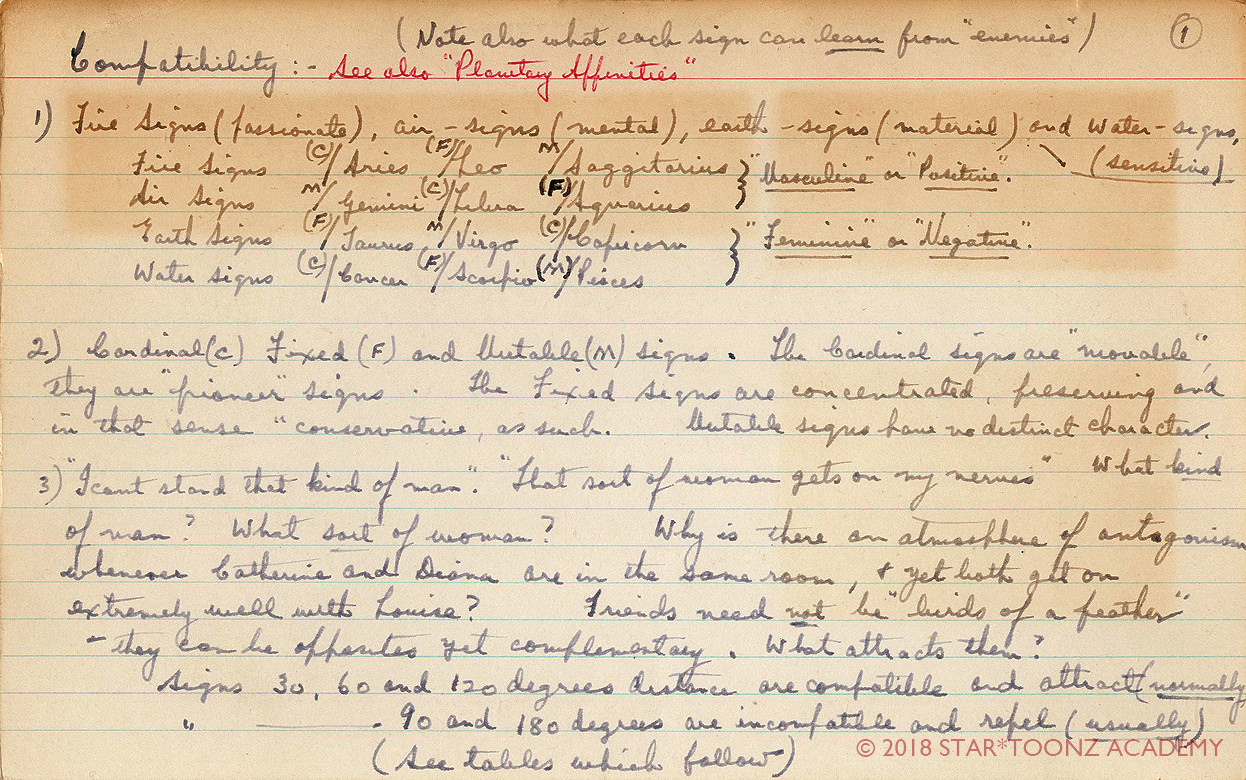 (Note also what each sign can learn from "enemies") 1
Compatibility :- See also "Planetary Affinities"
1) Fire Signs (passionate), air-signs (mental), earth-signs (material) and Water-signs,
(sensitive)
Fire Signs (C)/Aries (F)/Leo M/Saggitarius } "Masculine" or "Positive".
Air Signs M/Gemini (C)/Libra (F)/Aquarius
Earth Signs (F)/Taurus, M/Virgo (C)/Capricorn } "Feminine" or "Negative".
Water signs (C)/Cancer (F)/Scorpio (M)/Pisces
2) Cardinal (C) Fixed (F) and Mutable (M) signs. The Cardinal signs are "movable",
they are "pioneer" signs. The Fixed signs are concentrated, preserving and
in that sense "conservative, as such. Mutable signs have no distinct character.
3) "I cant stand that kind of man". "That sort of woman gets on my nerves" What kind
of man? What sort of woman? Why is there an atmosphere of antagonism
whenever Catherine and Diana are in the same room, & yet both get on
extremely well with Louise? Friends need not be "birds of a feather"
- they can be opposites yet complementary. What attracts them?
Signs 30, 60 and 120 degrees distance are compatible and attract (normally)
" ———. 90 and 180 degrees are incompatible and repel (usually)
(See tables which follow)
© 2018 STAR*TOONZ ACADEMY